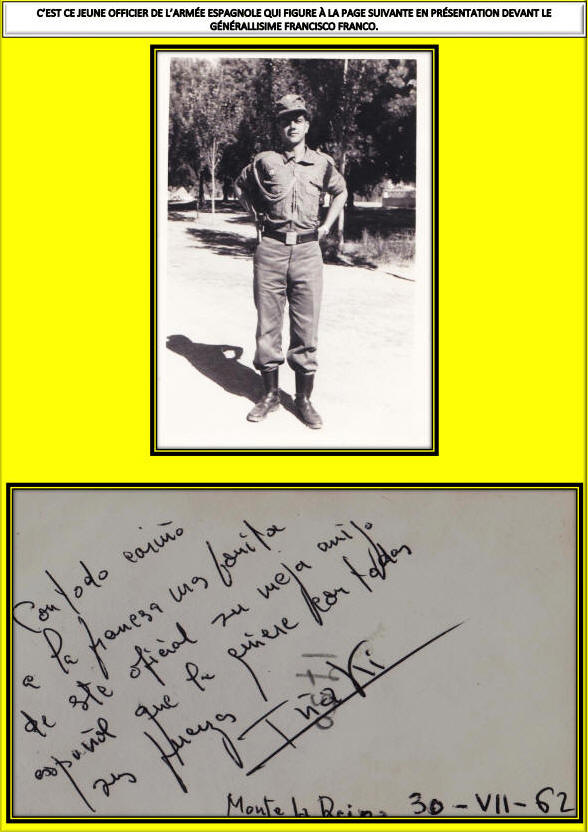 C'EST CE JEUNE OFFICIER DE L'ARMÉE ESPAGNOLE QUI FIGURE À LA PAGE SUIVANTE EN PRÉSENTATION DEVANT LE
GÉNÉRALLISIME FRANCISCO FRANCO.
Con todo cariño
a la francesa mas bonita
de este oficial su mejor amigo
español que la quiere con todas
sus fuerzas
Iñaki
Monte la Reina 30-VII-62